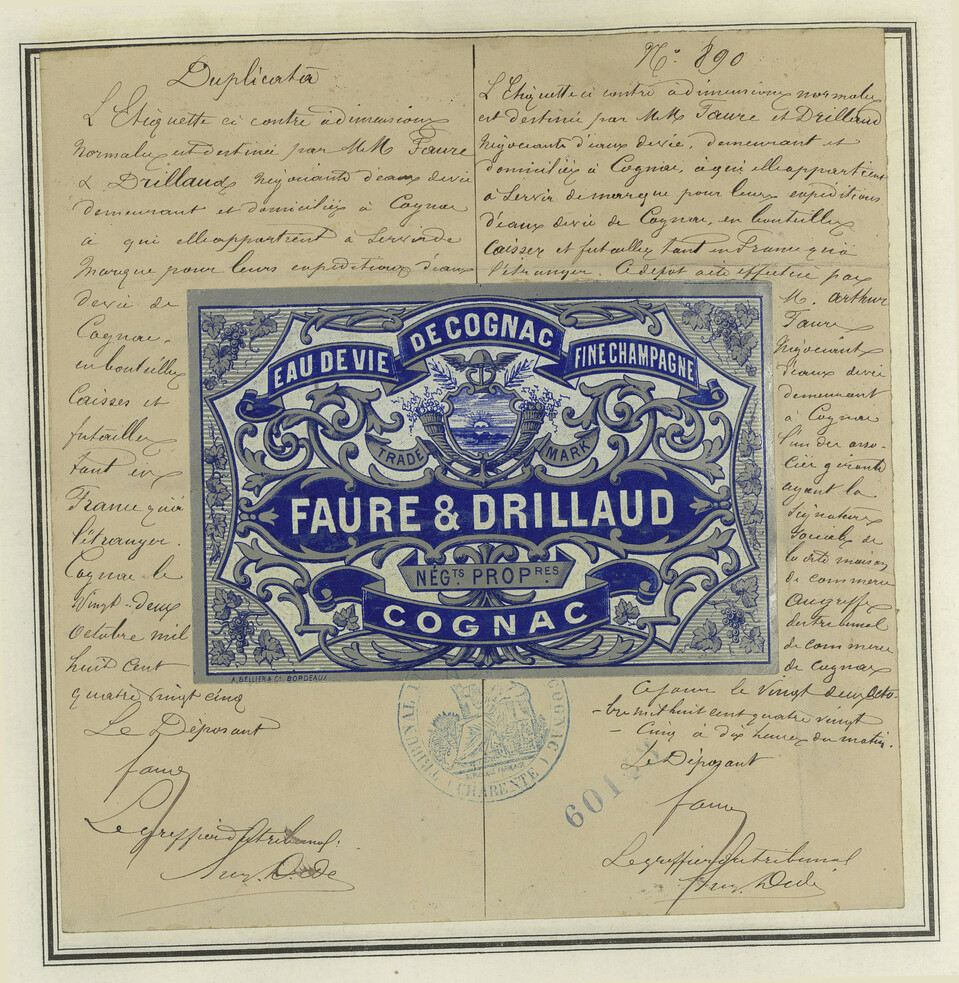 Duplicata
L'Etiquette ci contre à dimensions
normales est destinée par M.M. Faure
& Drillaud, négociants d'eaux de vie
demeurant et domiciliés à Cognac
à qui elle appartient à servir de
marque pour leurs expéditions d'eaux
de vie de
Cognac,
en bouteilles
Caisses et
futailles
tant en
France qu'à
l'étranger.
Cognac le
Vingt-deux
Octobre mil
huit cent
quatre vingt cinq
Le Déposant
Faure
Le greffier du tribunal.
N° 890
L'Etiquette ci contre à dimensions normales
est destinée par M.M. Faure et Drillaud
négociants d'eaux de vie, demeurant et
domiciliés à Cognac, à qui elle appartient
à servir de marque pour leurs expéditions
d'eaux de vie de Cognac, en bouteilles
Caisses et futailles tant en France qu'à
l'étranger. Ce dépôt a été effectué par
M. Arthur
Faure
négociant
d'eaux de vie
demeurant
à Cognac
l'un des asso-
ciés gérants
ayant la
signature
sociale de
la dite maison
de commerce
au greffe
du tribunal
de commerce
de Cognac
Ce jour le vingt deux octo-
-bre mil huit cent quatre vingt
- Cinq à dix heures du matin.
Le Déposant
Faure
Le greffier du tribunal
EAU DE VIE
DE COGNAC
FINE CHAMPAGNE
TRADE MARK
FAURE & DRILLAUD
NÉGTS PROPRES
COGNAC
A. BELLIER & Cie. BORDEAUX
TRIBUNAL COGNAC
RÉPUBLIQUE FRANÇAISE
(CHARENTE)